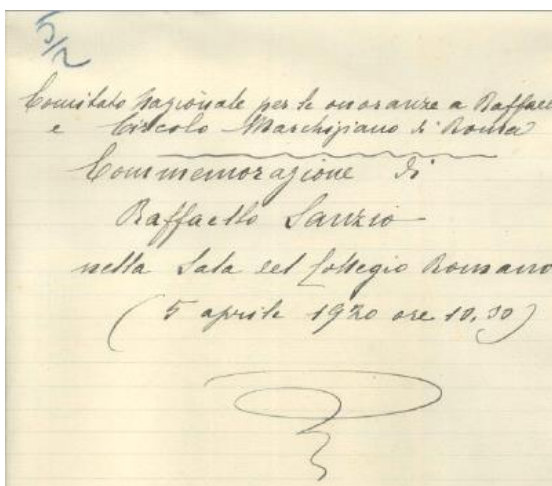 5/2
Comitato Nazionale per le onoranze a Raffae
e Circolo Marchigiano di Roma
Commemorazione di
Raffaello Sanzio
nella Sala del Collegio Romano
(5 aprile 1920 ore 10,30)